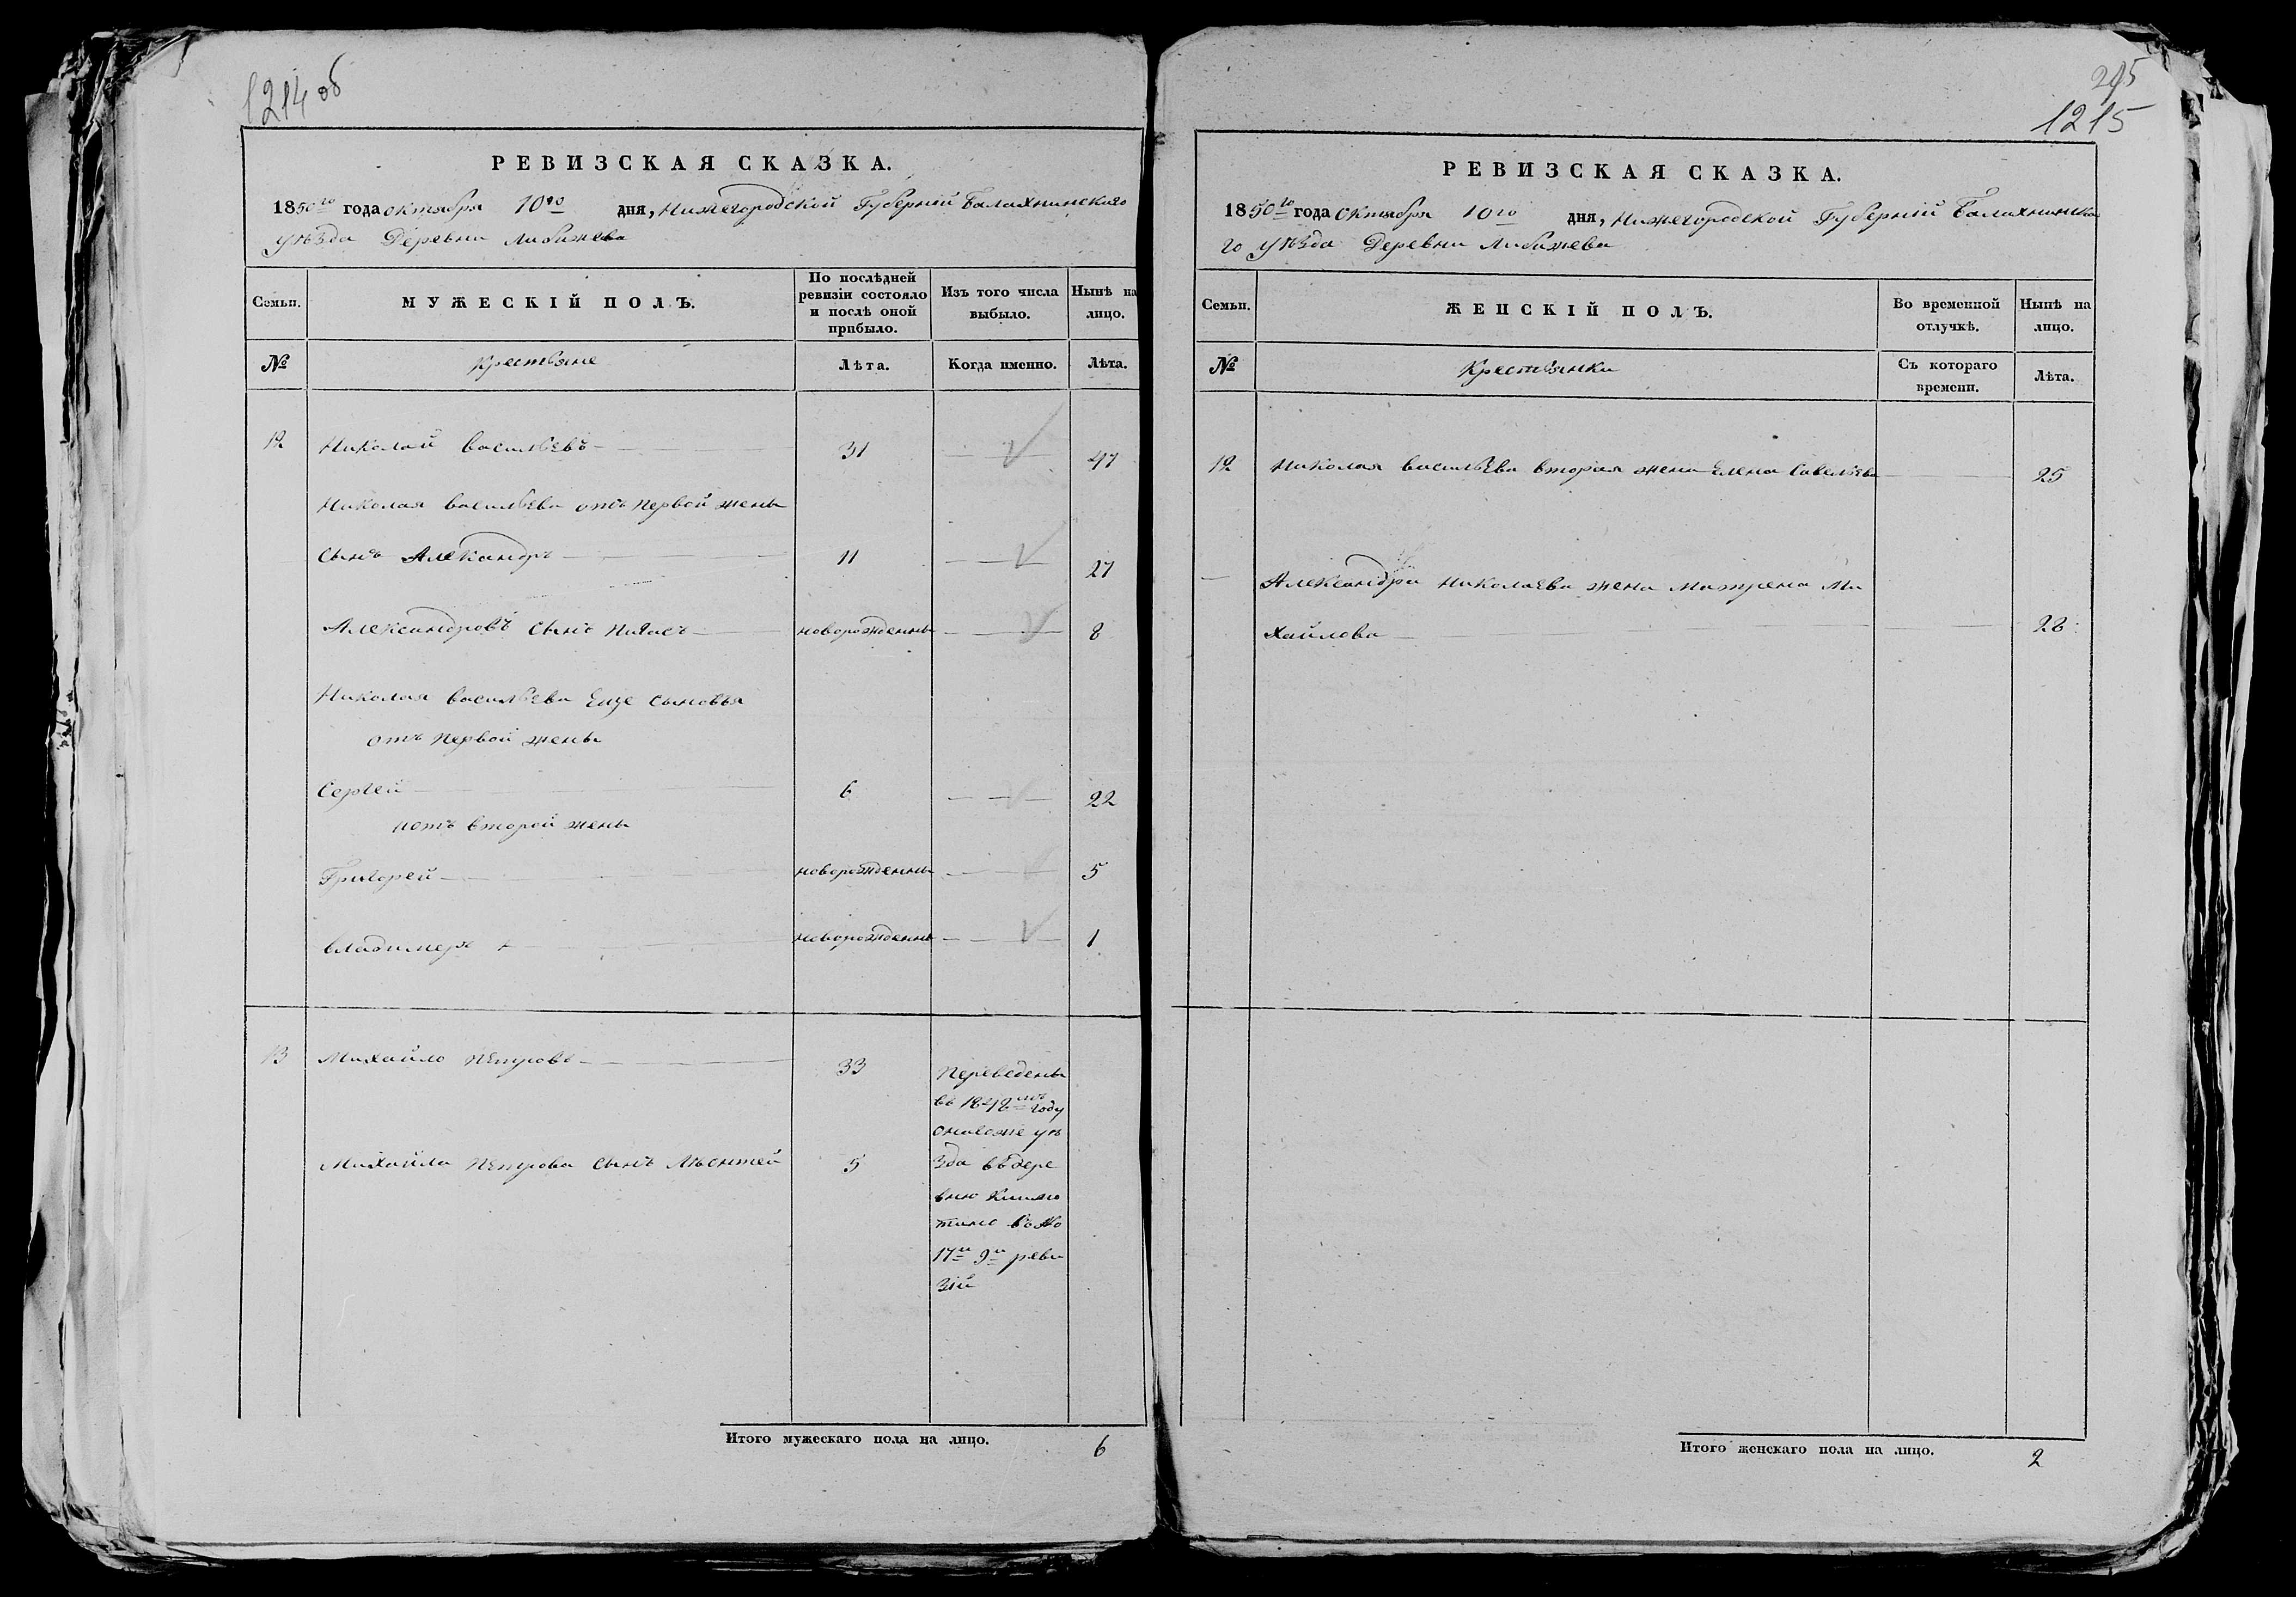 1214 об
РЕВИЗСКАЯ СКАЗКА.
1850го года октября 10го дня, Нижегородской Губерній Балахнинскаго
уѣзда Деревни
Семьи.
МУЖЕСКІЙ ПОЛЪ.
По послѣдней ревизіи состояло и послѣ оной прибыло.
Изъ того числа выбыло.
Нынѣ на лицо.
№
Крестьяне
Лѣта.
Когда именно.
Лѣта.
12 Николай васильевъ 31 47
Николая васильева отъ Первой жены
сынъ Александръ 11 27
Александровъ сынъ новорожденны 8
Николая васильева Еще сыновья
отъ Первой жены
Сергей 6 22
иотъ второй жены
Григорей новорожденны 5
владимеръ новорожденны 1
13 Михайло Петровъ 33
Михайла Петрова сынъ Лѣонтей 5
Переведены
въ 1848мъ году
оногоже уѣ
зда въдере
вню
въ №
17й 9й реви
зій
Итого мужескаго пола на лицо. 6
295
1215
РЕВИЗСКАЯ СКАЗКА.
1850го года октября 10го дня, Нижегородской Губерній Балахнинска
го уѣзда Деревни
Семьи.
ЖЕНСКІЙ ПОЛЪ.
Во временной отлучкѣ.
Нынѣ на лицо.
№
Крестьянки
Съ котораго времени.
Лѣта.
12 Николая васильева вторая жена Елена Савельева 25
Александра Николаева жена Матрена Ми
хайлова 28
Итого женскаго пола на лицо. 2